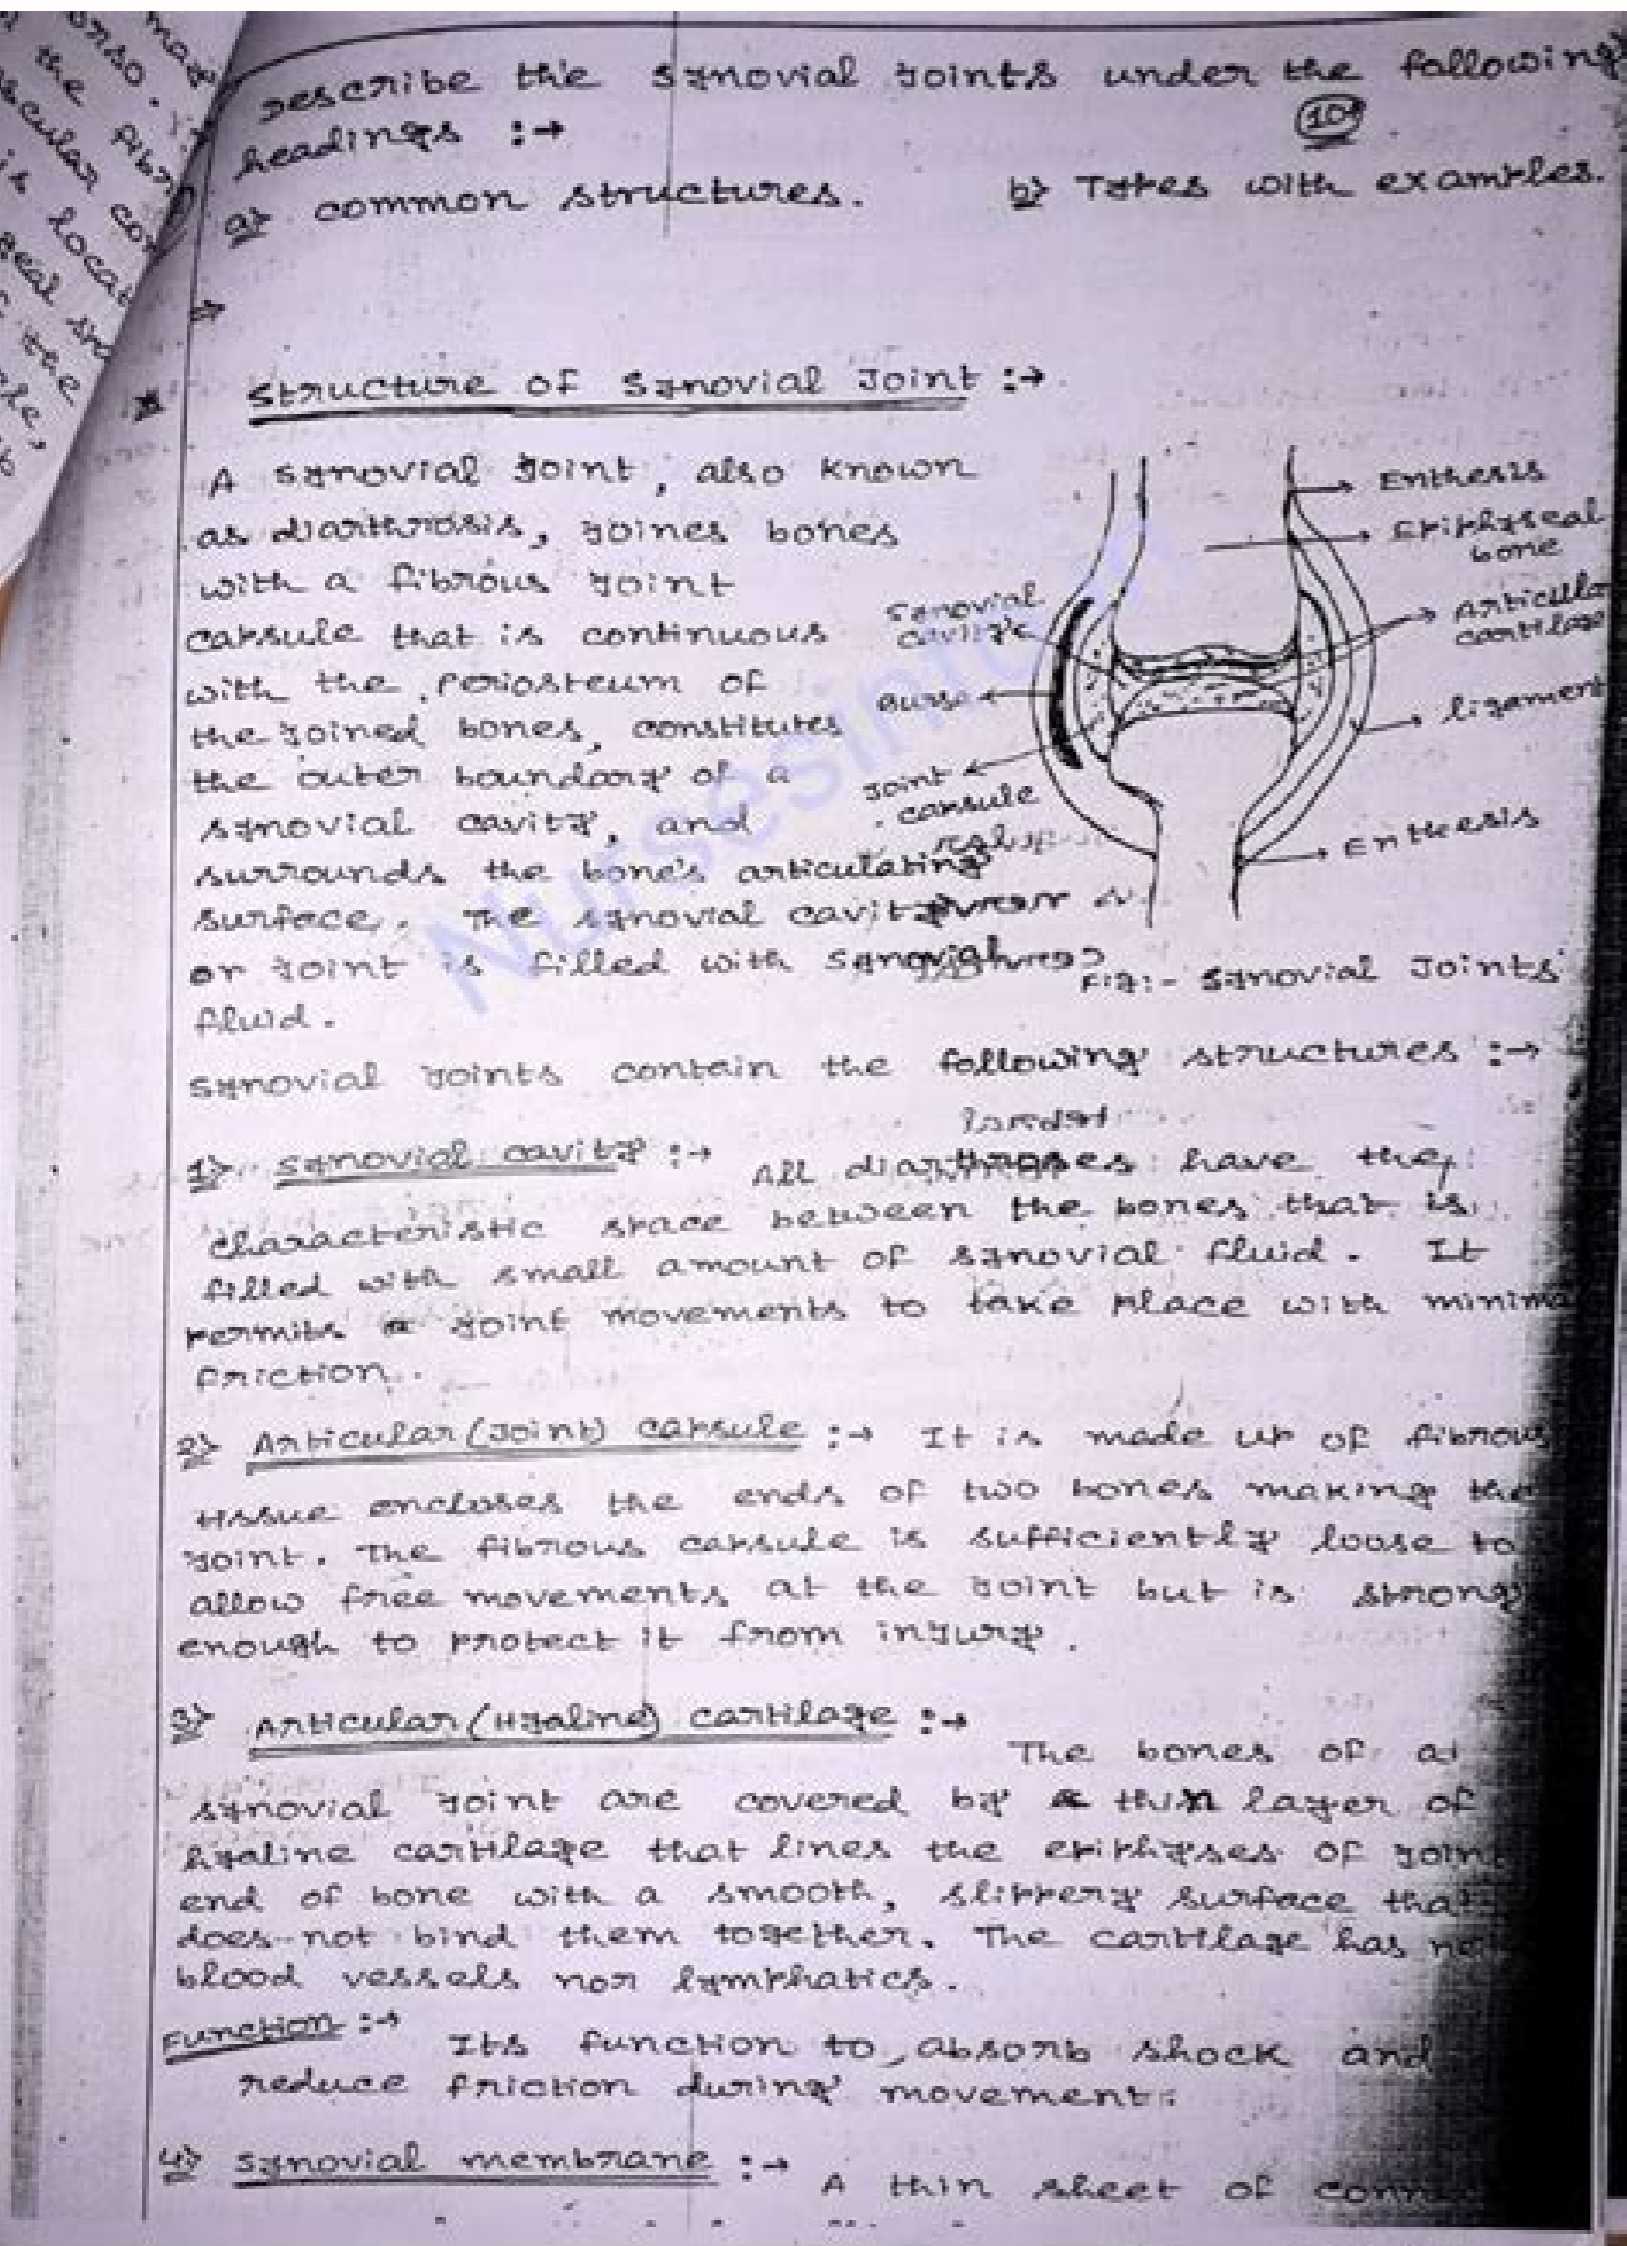 Describe the synovial joints under the following
headings :→ 10
a) common structures. b) Types with examples.
⇒
* Structure of Synovial Joint :→
A synovial joint, also known
as diarthrosis, joines bones
with a fibrous joint
capsule that is continuous
with the periosteum of
the joined bones, constitutes
the outer boundary of a
synovial cavity, and
surrounds the bone's articulating
surface. The synovial cavity
or joint is filled with synovial
fluid.
Enthesis
Epiphyseal
bone
Synovial
cavity
Articular
cartilage
Bursa
ligament
Joint
capsule
Enthesis
Fig:- Synovial Joints
Synovial joints contain the following structures :→
1) Synovial cavity :→ All diarthroses have the
characteristic space between the bones that is
filled with small amount of synovial fluid. It
permits joint movements to take place with minima
friction.
2) Articular (Joint) capsule :→ It is made up of fibrous
tissue encloses the ends of two bones making the
joint. The fibrous capsule is sufficiently loose to
allow free movements at the joint but is strong
enough to protect it from injury.
3) Articular (Hyaline) cartilage :→
The bones of a
synovial joint are covered by a thin layer of
hyaline cartilage that lines the epiphyses of joint
end of bone with a smooth, slippery surface that
does not bind them together. The cartilage has no
blood vessels nor lymphatics.
Function :→ Its function to absorb shock and
reduce friction during movement.
4) Synovial membrane :→ A thin sheet of